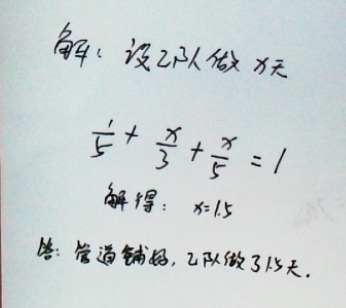 解：设乙队做x天
1/5 + x/3 + x/5 = 1
解得：x=1.5
答：管道铺好，乙队做了1.5天.